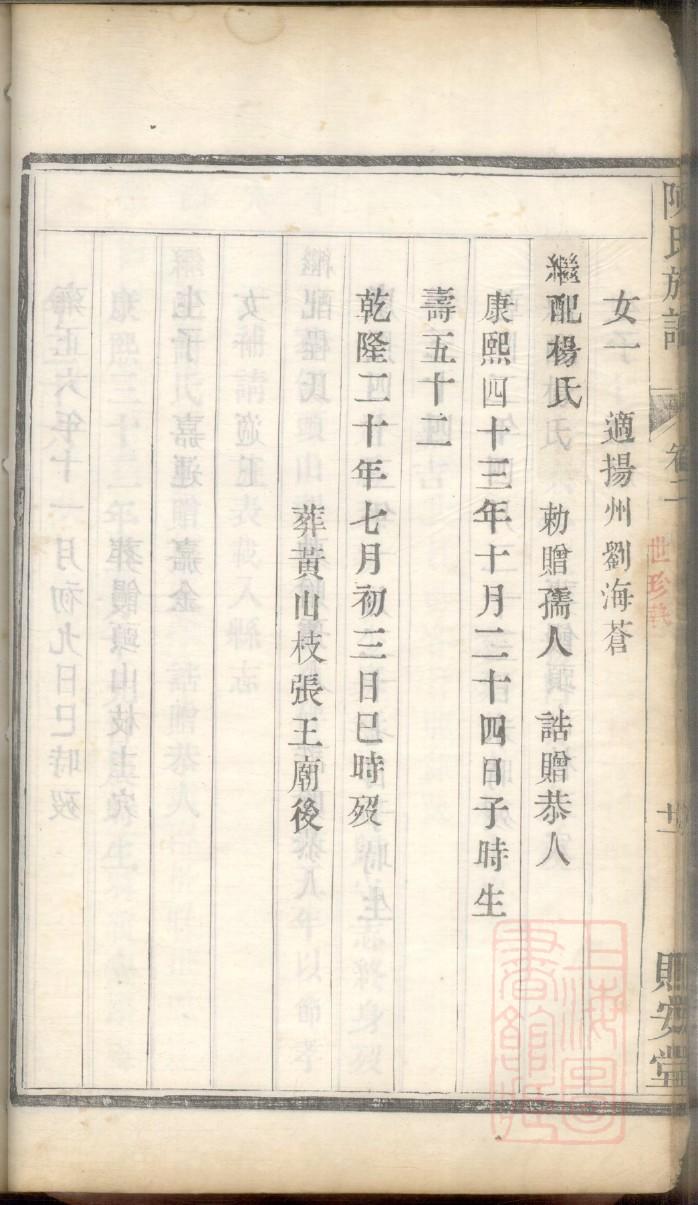 陳氏族譜
卷二
世珍執
十一
貽安堂
女一　適揚州劉海蒼
繼配楊氏　勅贈孺人　誥贈恭人
康熙四十三年十月二十四日子時生
壽五十二
乾隆二十年七月初三日巳時歿
葬黃山枝張王廟後
上海圖書館藏